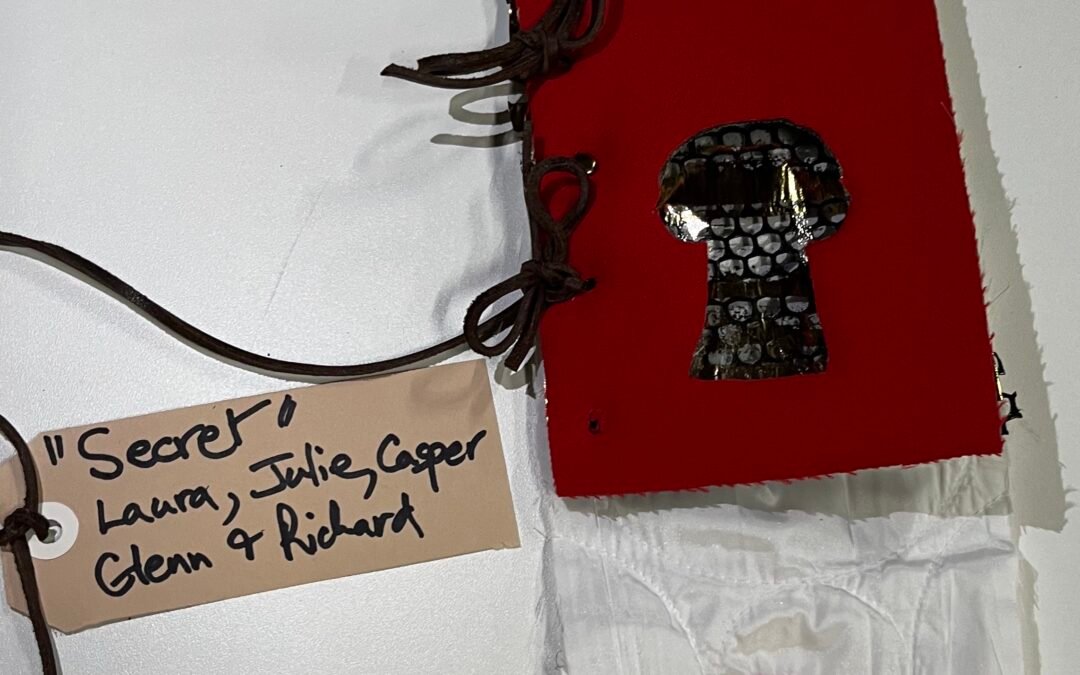 "Secret"
Laura, Julie, Casper
Glenn & Richard